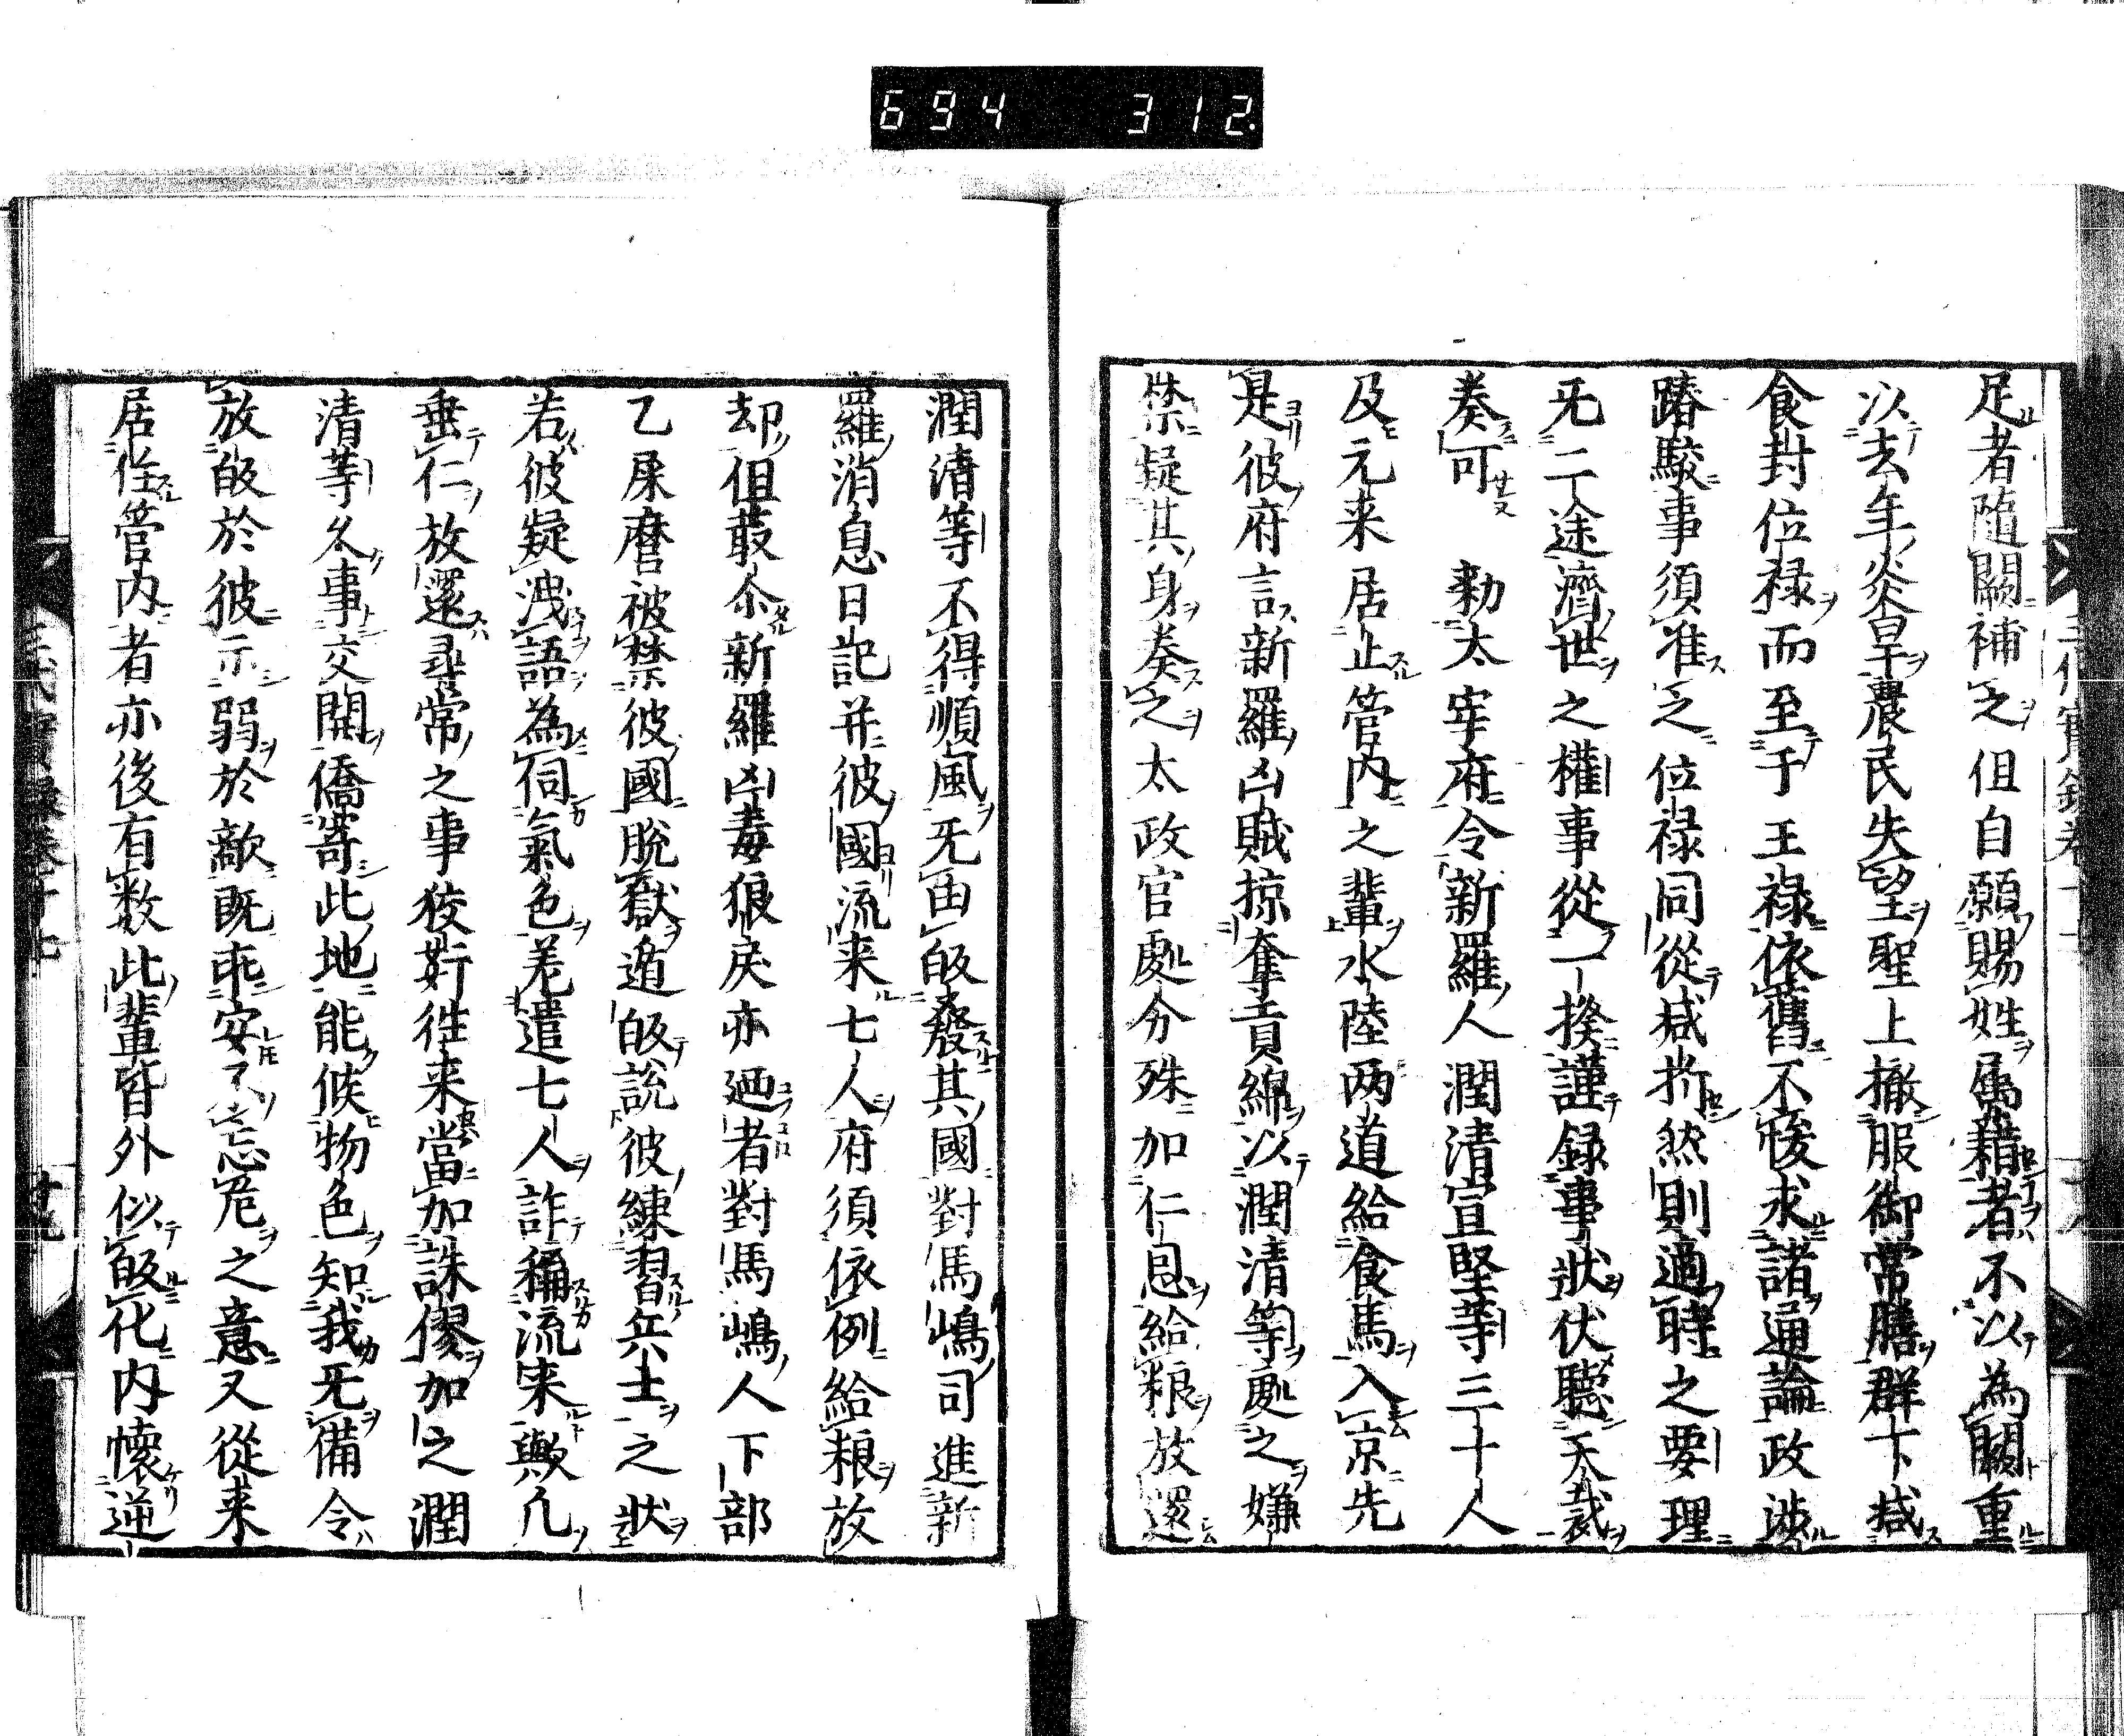 694 312
足者隨闕補之但自願賜姓属藉者不以為闕重
以去年炎旱農民失望聖上撤服御常膳群下减
食封位禄而至于王禄依舊不悛求諸通論政渉
踳駮事須准之位禄同從减折然則適時之要理
无二途濟世之權事從一揆謹録事狀伏聴天裁
奏可 勅太宰府令新羅人潤清宣堅等三十人
及元来居止管内之輩水陸两道給食馬入京先
是彼府言新羅凶賊掠奪貢綿以潤清等處之嫌
禁疑其身奏之太政官處分殊加仁恩給粮放還
潤清等不得順風无由皈發其國對馬嶋司進新
羅消息日記并彼國流来七人府須依例給粮放
却但蕞尒新羅凶毒狼戻亦廼者對馬嶋人下部
乙屎麿被禁彼國脱獄遁皈説彼練習兵士之狀
若彼疑洩語為伺氣色差遣七人詐稱流来歟凡
垂仁放還尋常之事狡姧徃来當加誅僇加之潤
清等久事交関僑寄此地能候物色知我无備令
放皈於彼示弱於敵既乖安不忘危之意又從来
居住管内者亦後有数此輩皆外似皈化内懷逆